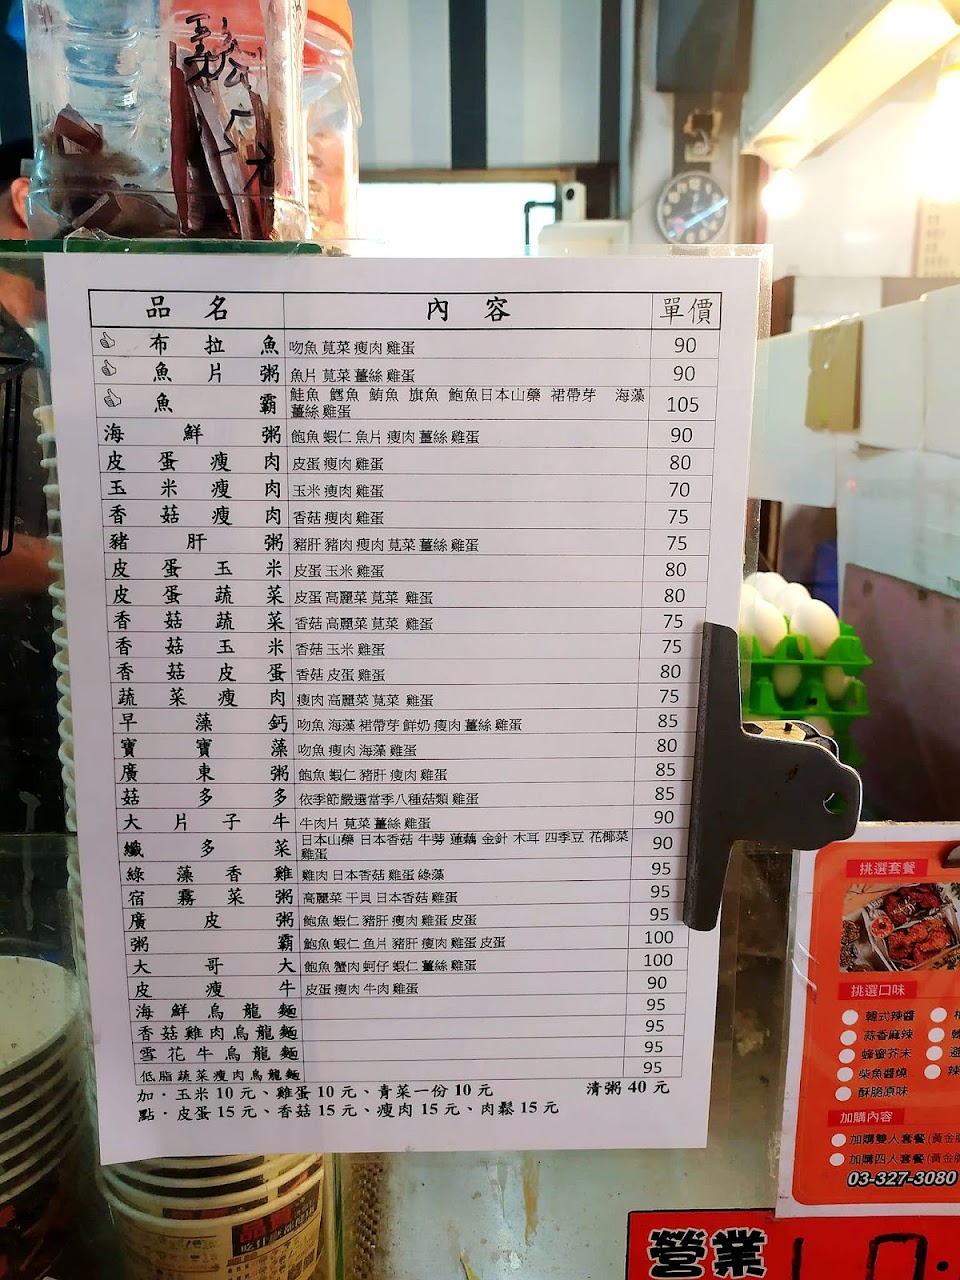 鬆
5元
品名 內容 單價
布拉魚 吻魚 莧菜 瘦肉 雞蛋 90
魚片粥 魚片 莧菜 薑絲 雞蛋 90
魚霸 鮭魚 鱈魚 鮪魚 旗魚 鮑魚日本山藥 裙帶芽 海藻
薑絲 雞蛋 105
海鮮粥 鮑魚 蝦仁 魚片 瘦肉 薑絲 雞蛋 90
皮蛋瘦肉 皮蛋 瘦肉 雞蛋 80
玉米瘦肉 玉米 瘦肉 雞蛋 70
香菇瘦肉 香菇 瘦肉 雞蛋 75
豬肝粥 豬肝 豬肉 瘦肉 莧菜 薑絲 雞蛋 75
皮蛋玉米 皮蛋 玉米 雞蛋 80
皮蛋蔬菜 皮蛋 高麗菜 莧菜 雞蛋 80
香菇蔬菜 香菇 高麗菜 莧菜 雞蛋 75
香菇玉米 香菇 玉米 雞蛋 75
香菇皮蛋 香菇 皮蛋 雞蛋 80
蔬菜瘦肉 瘦肉 高麗菜 莧菜 雞蛋 75
早藻鈣 吻魚 海藻 裙帶芽 鮮奶 瘦肉 薑絲 雞蛋 85
寶寶藻 吻魚 瘦肉 海藻 雞蛋 80
廣東粥 鮑魚 蝦仁 豬肝 瘦肉 雞蛋 85
菇多多 依季節嚴選當季八種菇類 雞蛋 85
大片子牛 牛肉片 莧菜 薑絲 雞蛋 90
纖多菜 日本山藥 日本香菇 牛蒡 蓮藕 金針 木耳 四季豆 花椰菜
雞蛋 90
綠藻香雞 雞肉 日本香菇 雞蛋 綠藻 95
宿霧菜粥 高麗菜 干貝 日本香菇 雞蛋 95
廣皮粥 鮑魚 蝦仁 豬肝 瘦肉 雞蛋 皮蛋 95
粥霸 鮑魚 蝦仁 鱼片 豬肝 瘦肉 雞蛋 皮蛋 100
大哥大 鮑魚 蟹肉 蚵仔 蝦仁 薑絲 雞蛋 100
皮瘦牛 皮蛋 瘦肉 牛肉 雞蛋 90
海鮮烏龍麵 95
香菇雞肉烏龍麵 95
雪花牛烏龍麵 95
低脂蔬菜瘦肉烏龍麵 95
加・玉米 10 元、雞蛋 10 元、青菜一份 10 元 清粥 40 元
點・皮蛋 15 元、香菇 15 元、瘦肉 15 元、肉鬆 15 元
挑選套餐
挑選口味
韓式辣醬
蒜香麻辣
蜂蜜芥末
柴魚醬燒
酥脆原味
加購內容
加購雙人套餐
加購四人套餐
03-327-3080
營業